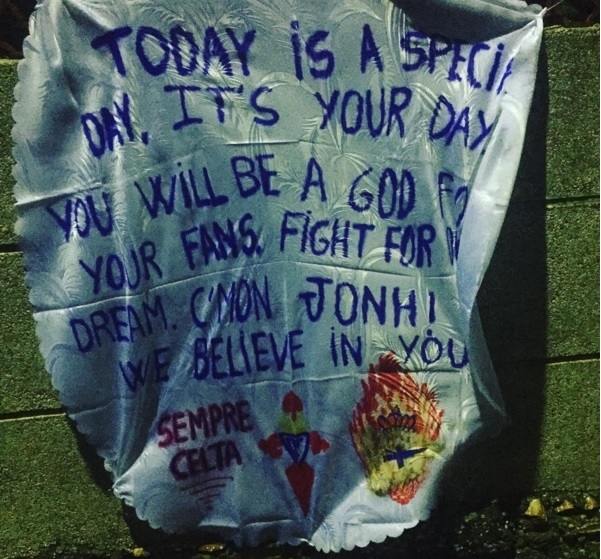 TODAY iS A SPECi
DAY. IT'S YOUR DAY
YOU WiLL BE A GOD FO
YOUR FANS. FiGHT FOR
DREAM. C'MON JONHI
WE BELIEVE IN YOU
SEMPRE
CELTA